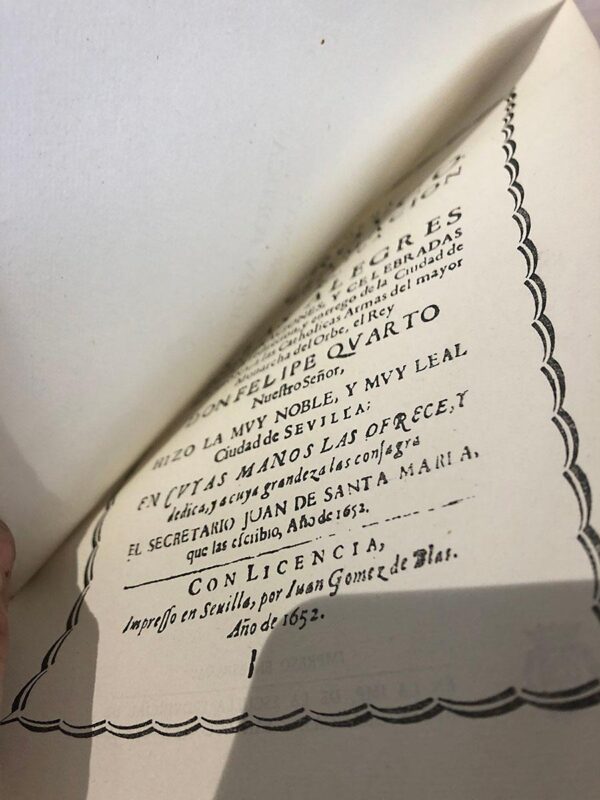 ALEGRES
Y CELEBRADAS
y entrego de la Ciudad de
a las Catholicas Armas del mayor
Monarcha del Orbe, el Rey
DON FELIPE QVARTO
Nueſtro Señor,
HIZO LA MVY NOBLE, Y MVY LEAL
Ciudad de SEVILLA;
EN CVYAS MANOS LAS OFRECE, Y
dedica, y a cuya grandeza las conſagra
EL SECRETARIO JUAN DE SANTA MARIA,
que las eſcribio, Año de 1652.
CON LICENCIA,
Impreſſo en Seuilla, por Iuan Gomez de Blas.
Año de 1652.